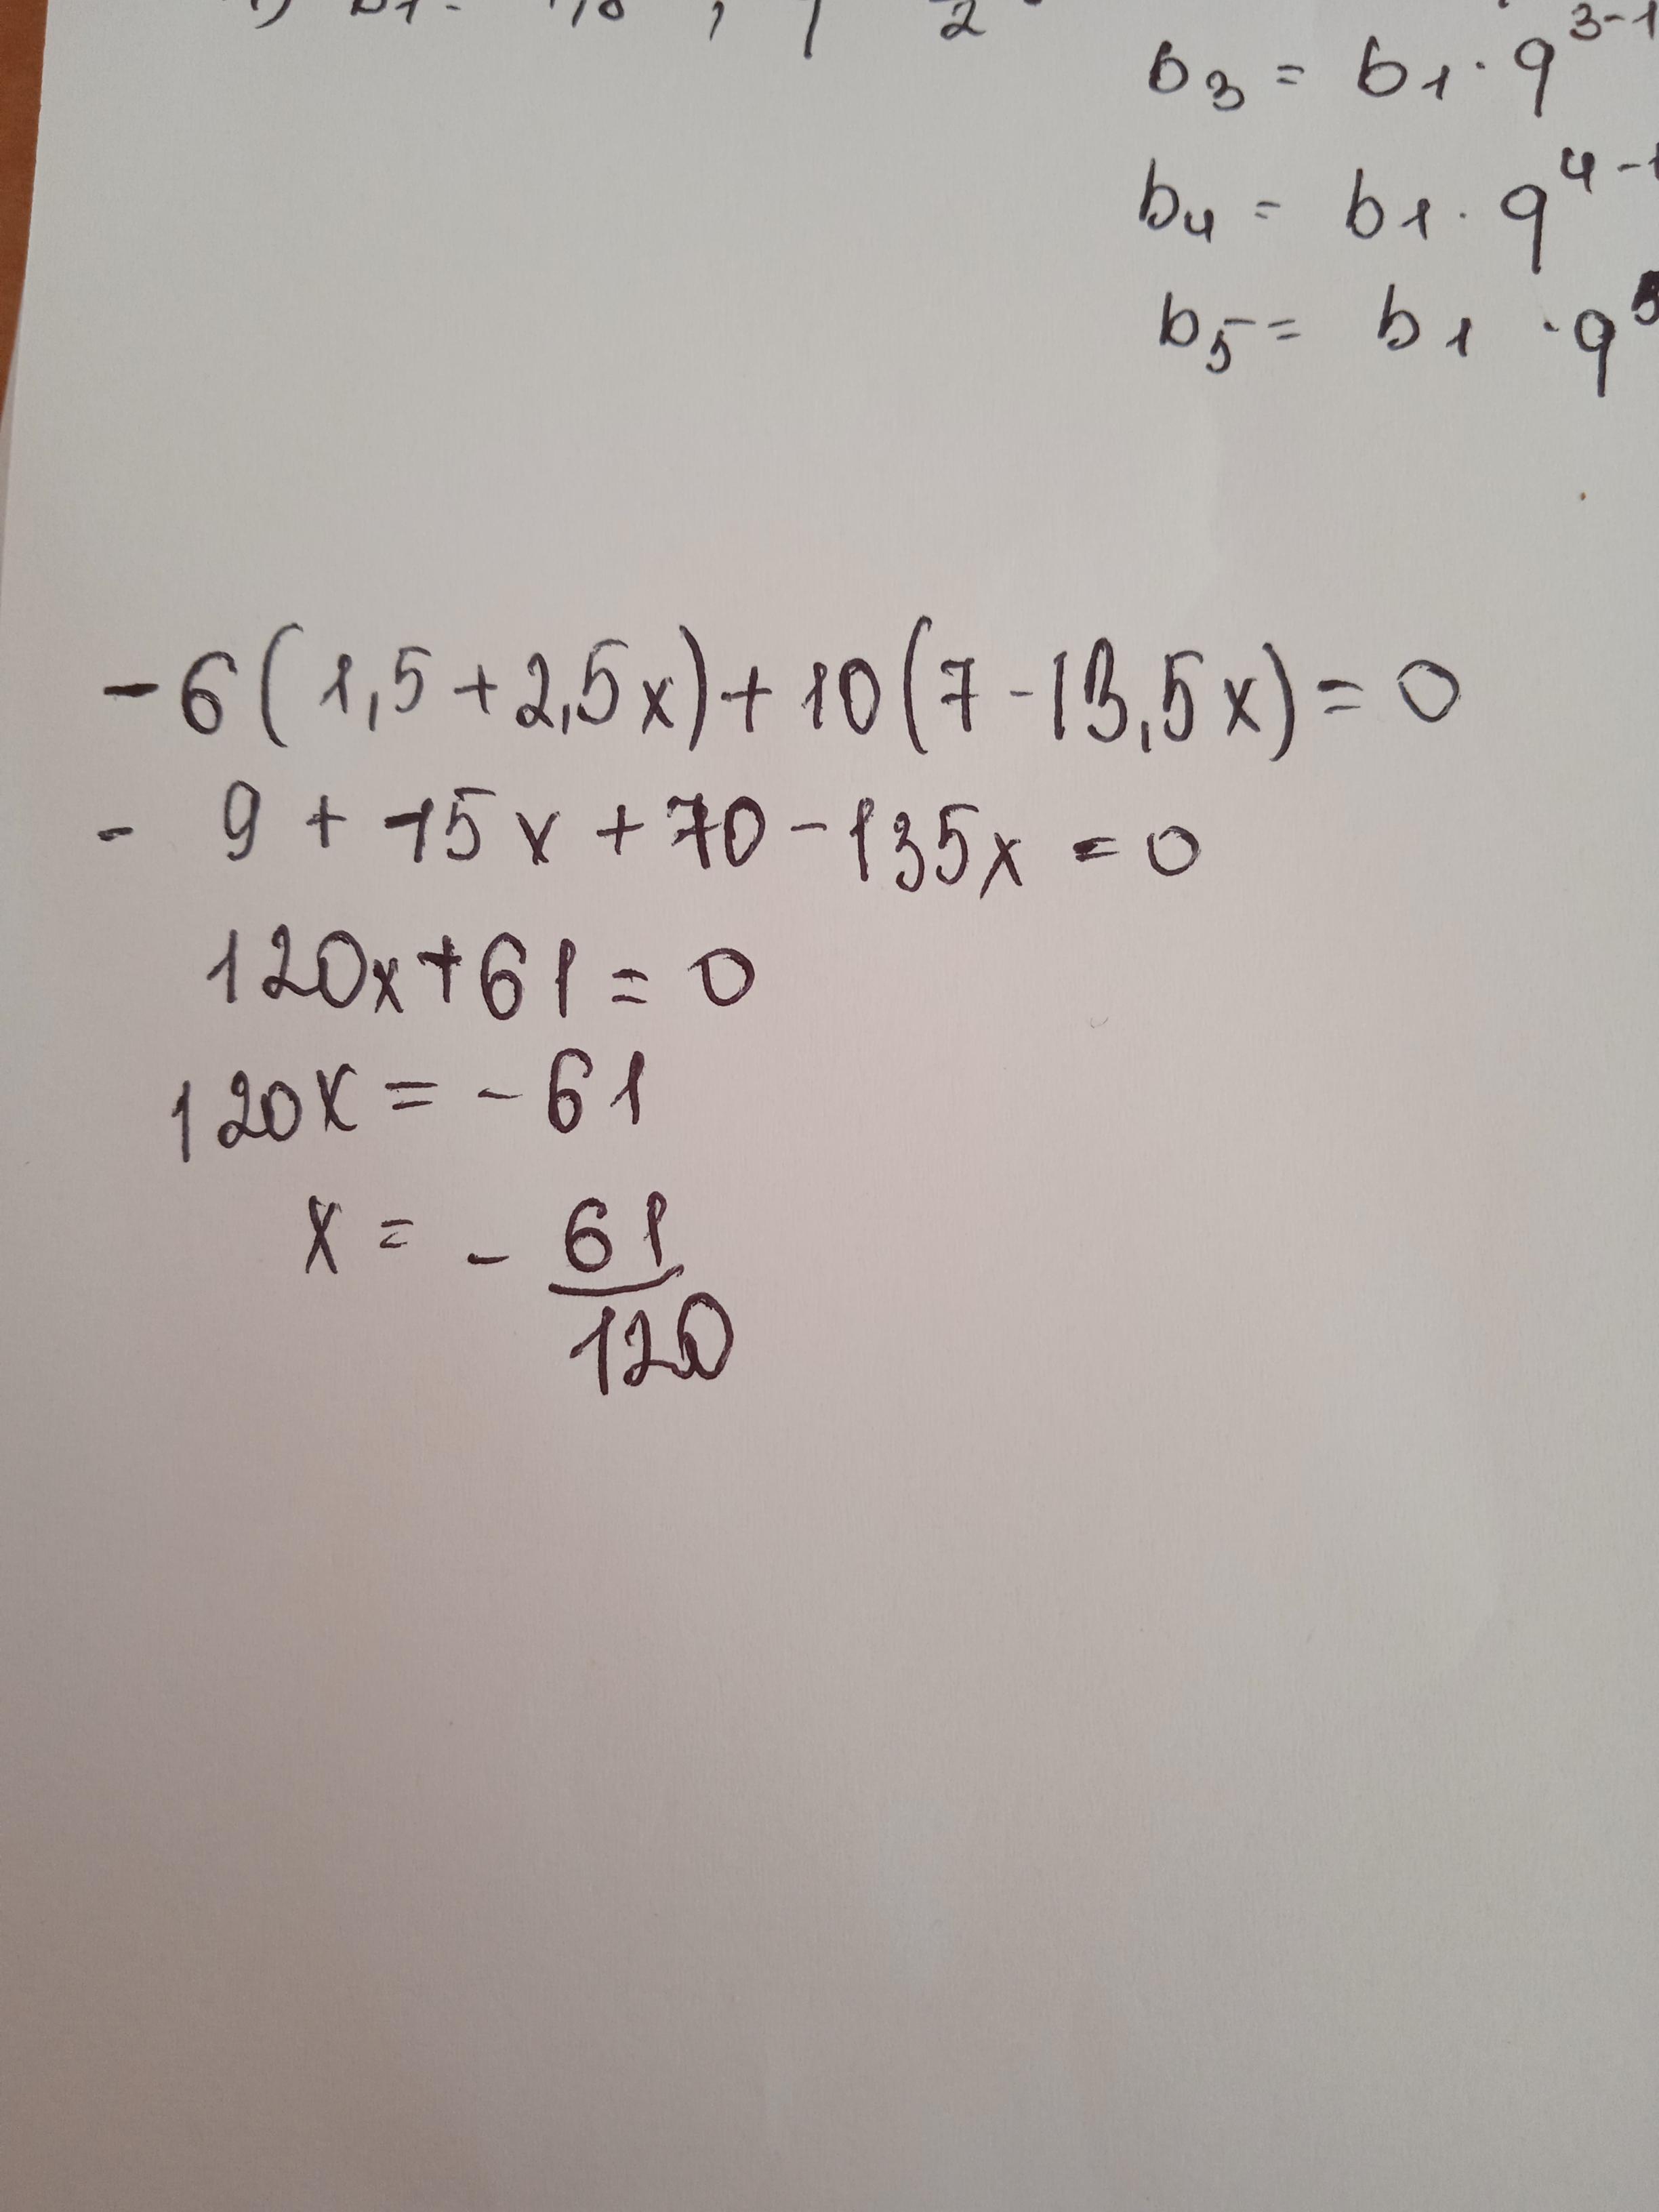 b3 = b1 · q^3-1
b4 = b1 · q^4-1
b5 = b1 · q^5
-6(1,5+2,5x)+10(7-13,5x)=0
- 9 + -15x + 70 - 135x = 0
120x+61=0
120x = -61
x = - 61/120